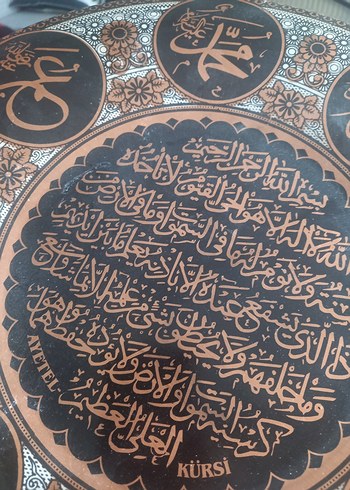 محمد
بسم الله الرحمن الرحيم
الله لا اله الا هو الحي القيوم لا تأخذه
سنة ولا نوم له ما في السموات وما في الارض
ذا الذي يشفع عنده الا باذنه يعلم ما بين ايديهم
وما خلفهم ولا يحيطون بشئ من علمه الا بما شاء وسع
كرسيه السموات والارض ولا يؤده حفظهما وهو
العلي العظيم
AYETEL
KÜRSİ